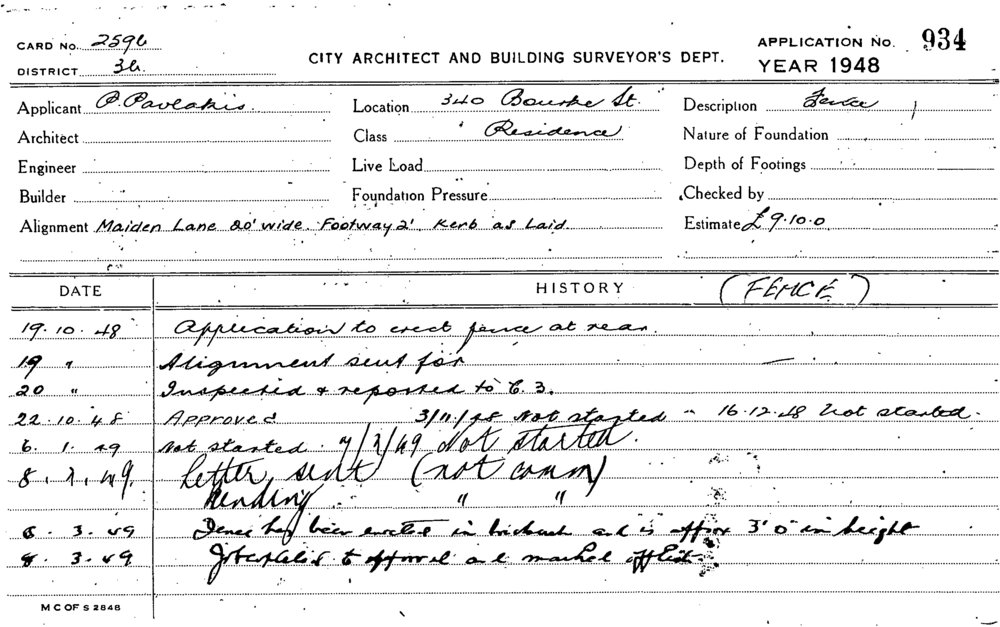 CARD No. 2596
DISTRICT 3b.
CITY ARCHITECT AND BUILDING SURVEYOR'S DEPT.
APPLICATION No. 934
YEAR 1948
Applicant P. Pavlakis. Location 340 Bourke St. Description Fence
Architect Class Residence Nature of Foundation
Engineer Live Load Depth of Footings
Builder Foundation Pressure Checked by
Alignment Maiden Lane 20' wide. Footway 2' Kerb as Laid Estimate £9.10.0
DATE HISTORY (FEMCE)
19.10.48 Application to erect fence at rear.
19 " Alignment sent for
20 " Inspected & reported to C.3.
22.10.48 Approved 3/11/48 Not started " 16.12.48 Not started.
6.1.49 Not started. 7/2/49 Not started.
8.2.49. Letter sent (not comm)
Pending " "
8.3.49 Fence has been erected in brickwork and is approx 3'0" in height
8.3.49 Job completed to approval and marked off list
M C OF S 2848